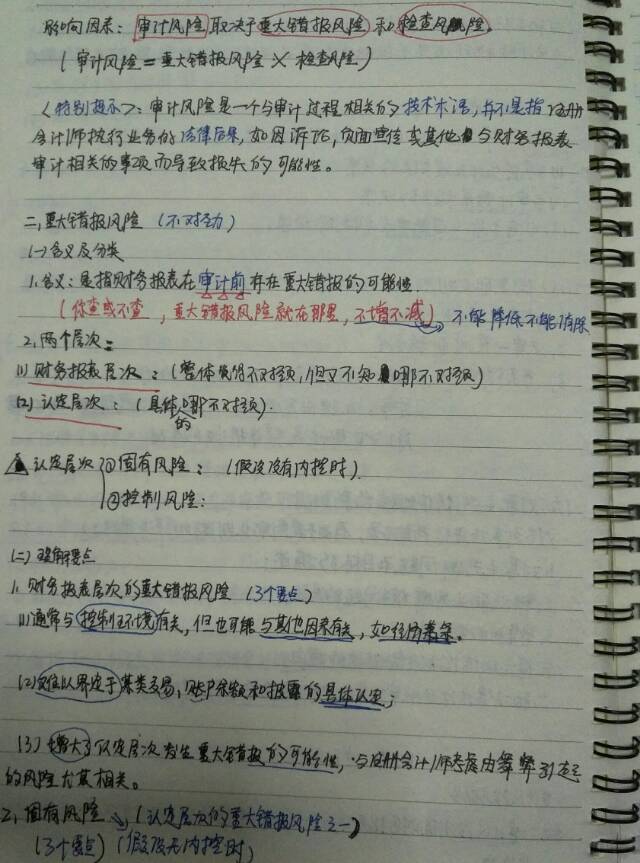 影响因素：审计风险取决于重大错报风险和检查风险。
（审计风险＝重大错报风险×检查风险）
〈特别提示〉：审计风险是一个与审计过程相关的技术术语，并不是指注册
会计师执行业务的法律后果，如因诉讼，负面宣传或其他与财务报表
审计相关的事项而导致损失的可能性。
二、重大错报风险（不对劲）
㈠含义及分类
1.含义：是指财务报表在审计前存在重大错报的可能性
（你查或不查，重大错报风险就在那里，不增不减）不能降低不能消除
2.两个层次：
⑴财务报表层次：（整体觉得不对头，但又不知哪不对头）
⑵认定层次：（具体的哪不对头）.
认定层次 ①固有风险：（假设没有内控时）.
②控制风险：
㈡理解要点
1.财务报表层次的重大错报风险（3个要点）
⑴通常与控制环境有关，但也可能与其他因素有关，如经济萧条。
⑵难以界定于某类交易、账户余额和披露的具体认定；
⑶增大了认定层次发生重大错报的可能性，与注册会计师考虑由舞弊引起
的风险尤其相关。
2.固有风险（认定层次的重大错报风险之一）
（3个要点）（假设无内控时）